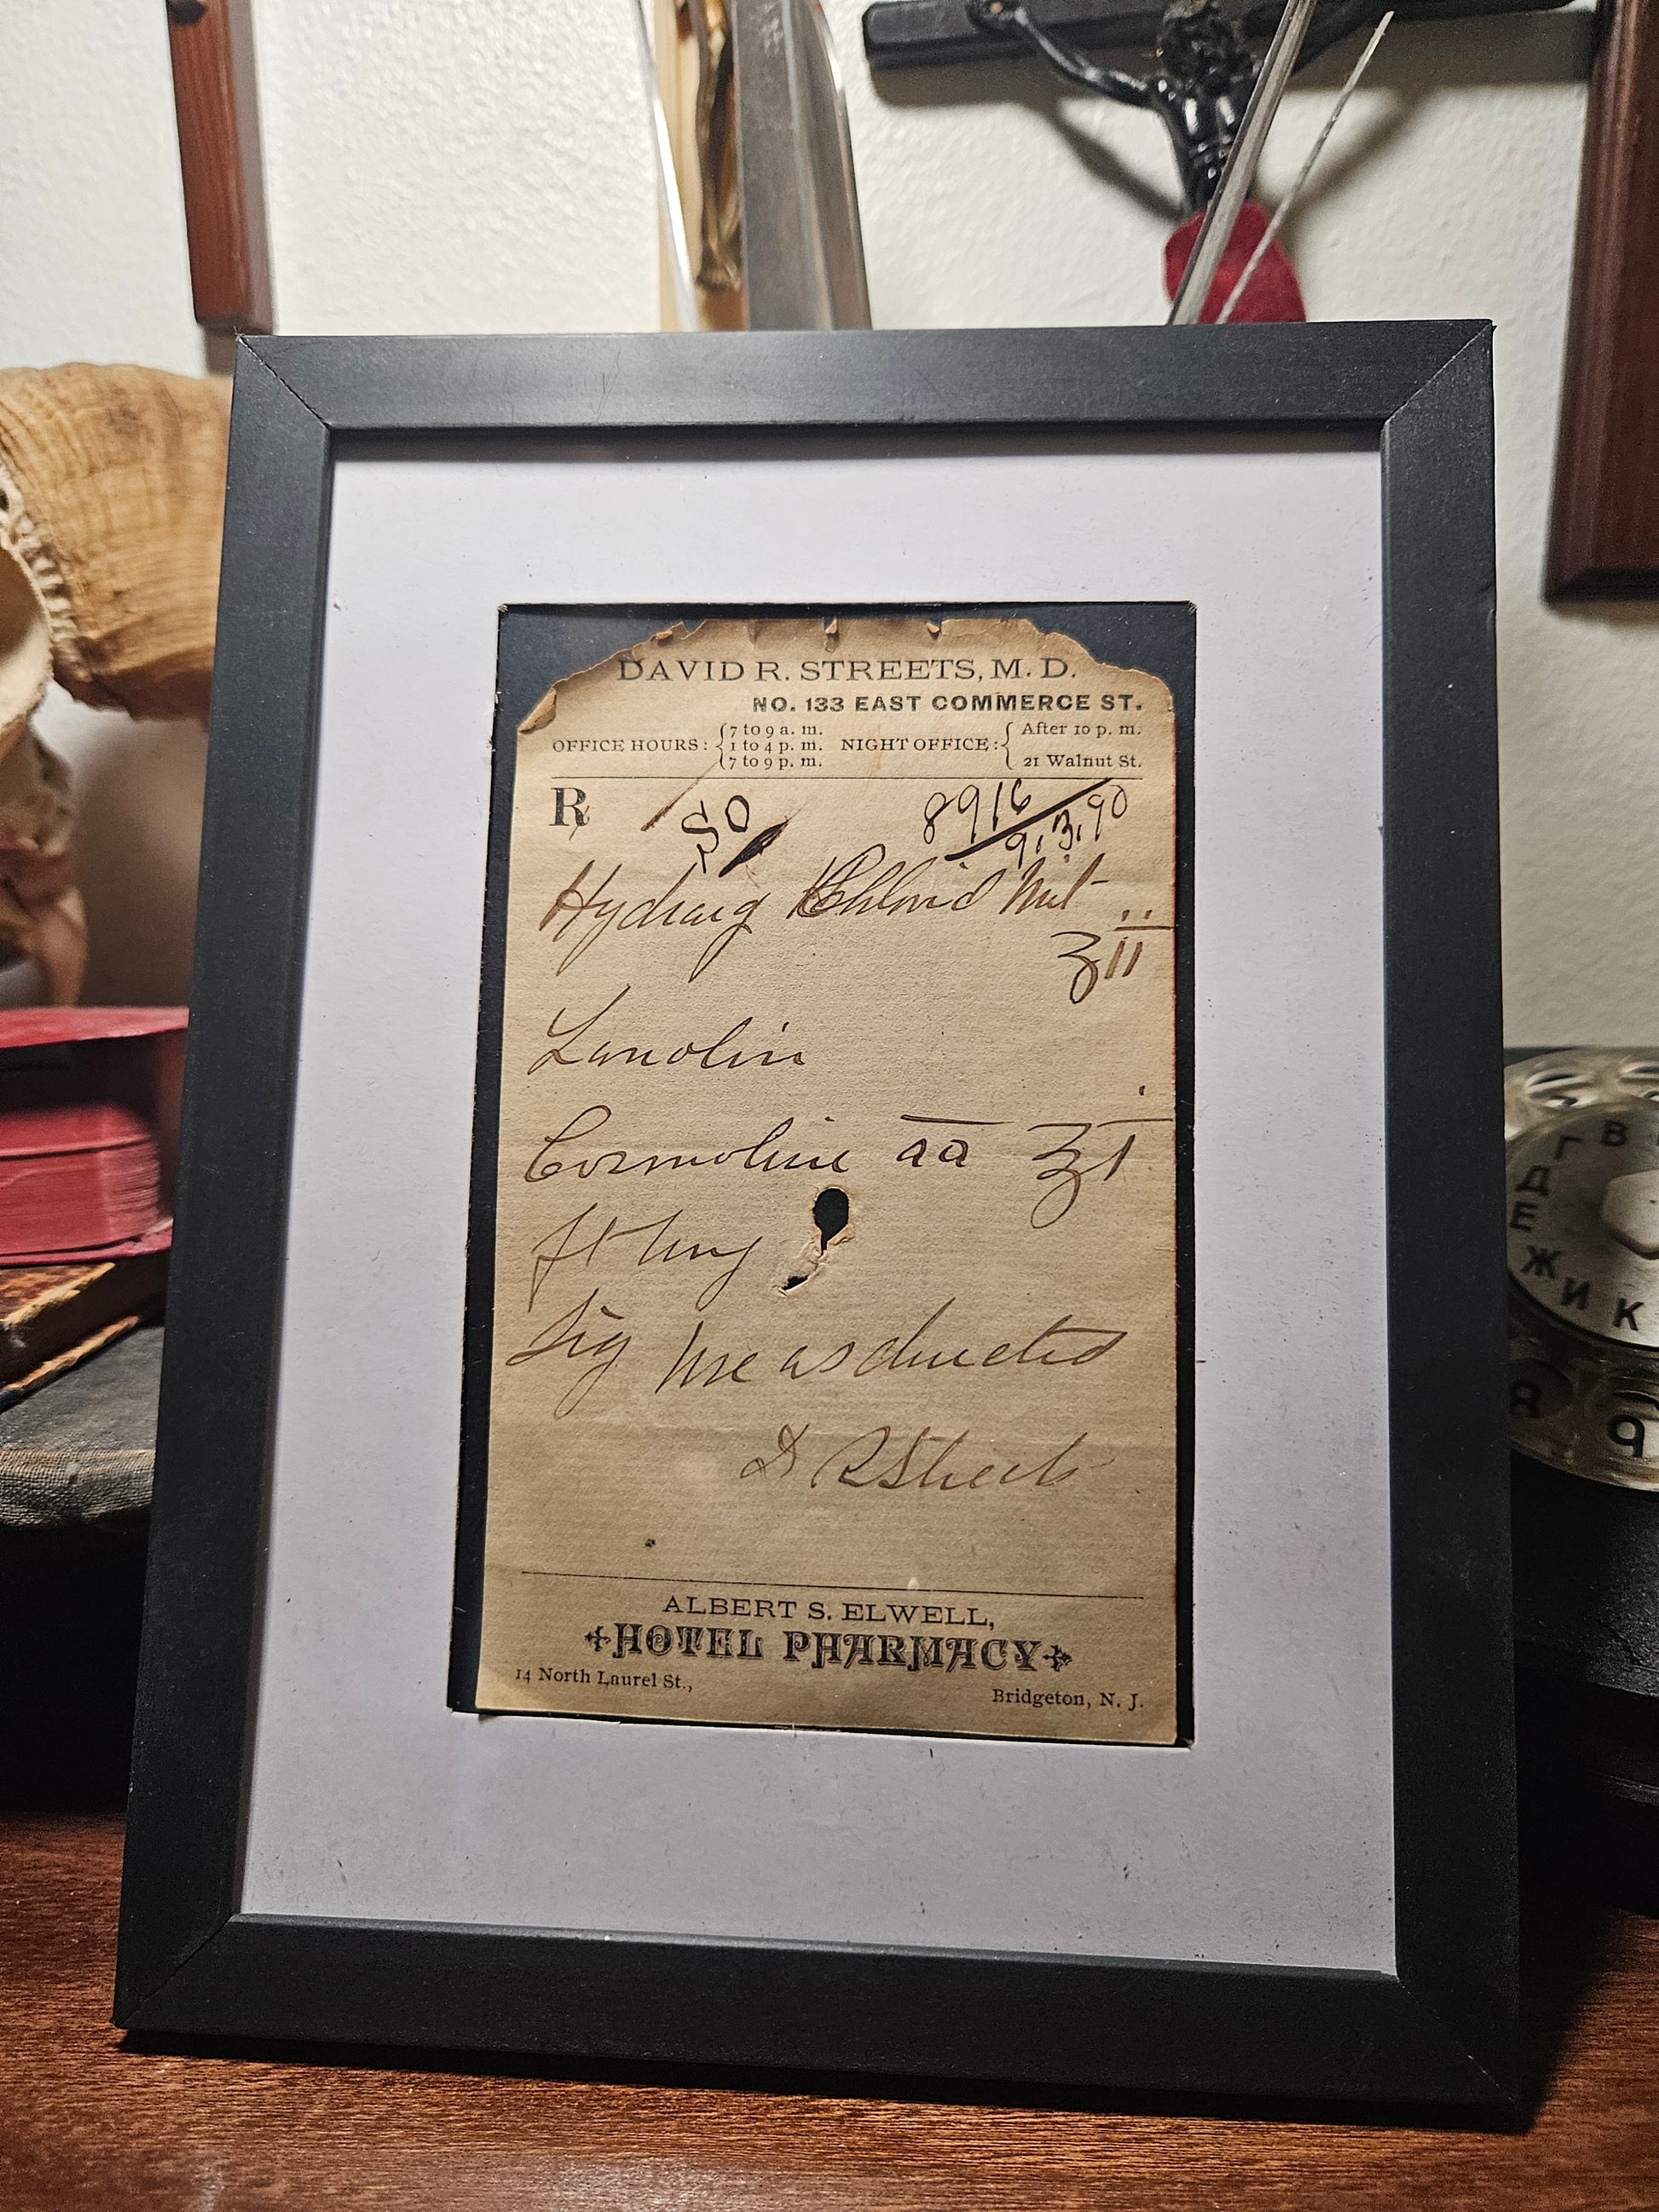 DAVID R. STREETS, M. D.
NO. 133 EAST COMMERCE ST.
OFFICE HOURS: { 7 to 9 a. m. 1 to 4 p. m. 7 to 9 p. m. NIGHT OFFICE: { After 10 p. m. 21 Walnut St.
℞ 50 8916
9.3.90
Hydrarg Chlorid Mit
ʒii
Lanolin
Cosmoline aa ʒi
ft ung
Sig Use as directed
D R Streets
ALBERT S. ELWELL,
HOTEL PHARMACY
14 North Laurel St., Bridgeton, N. J.
В
Г
Д
Е
Ж
И
К
Я
9